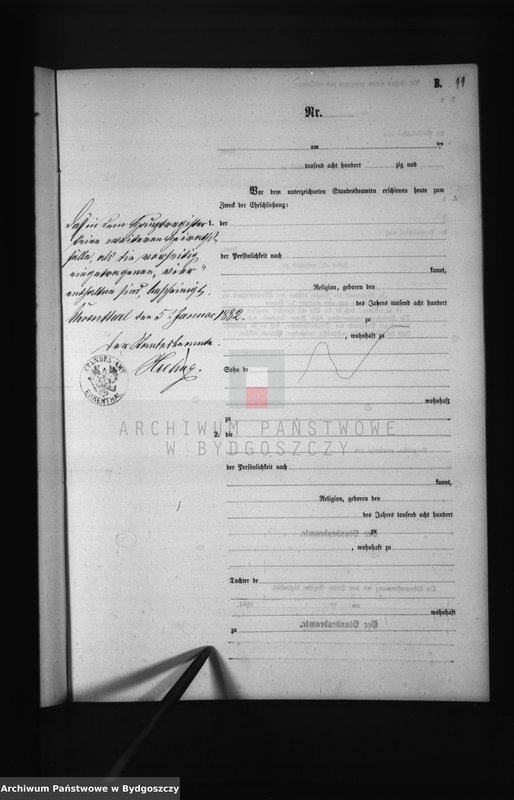 B. 11
Nr.
am ten
tausend acht hundert zig und
Vor dem unterzeichneten Standesbeamten erschienen heute zum
Zweck der Eheschließung:
1. der
der Persönlichkeit nach
kannt,
Religion, geboren den
des Jahres tausend acht hundert
zu
, wohnhaft zu
Sohn de
wohnhaft
zu
2. die
der Persönlichkeit nach
kannt,
Religion, geboren den
des Jahres tausend acht hundert
zu
, wohnhaft zu
Tochter de
wohnhaft
zu
Daß in dem Hauptregister
keine weiteren Heiraths-
fälle, als die vorseitig
eingetragenen, vier
enthalten sind, bescheinigt.
Ehrenthal den 5. Januar 1882.
Der Standesbeamte.
STANDES-AMT
EHRENTHAL
ARCHIWUM PAŃSTWOWE
W BYDGOSZCZY
Der Standesbeamte.
Der Standesbeamte.
Archiwum Państwowe w Bydgoszczy